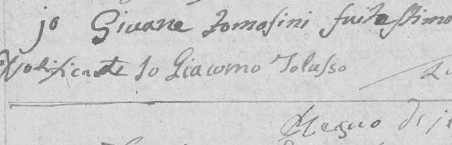 jo Giuane Tomasini fui testimo
Notificante Io Giacomo Tolusso
Regno di